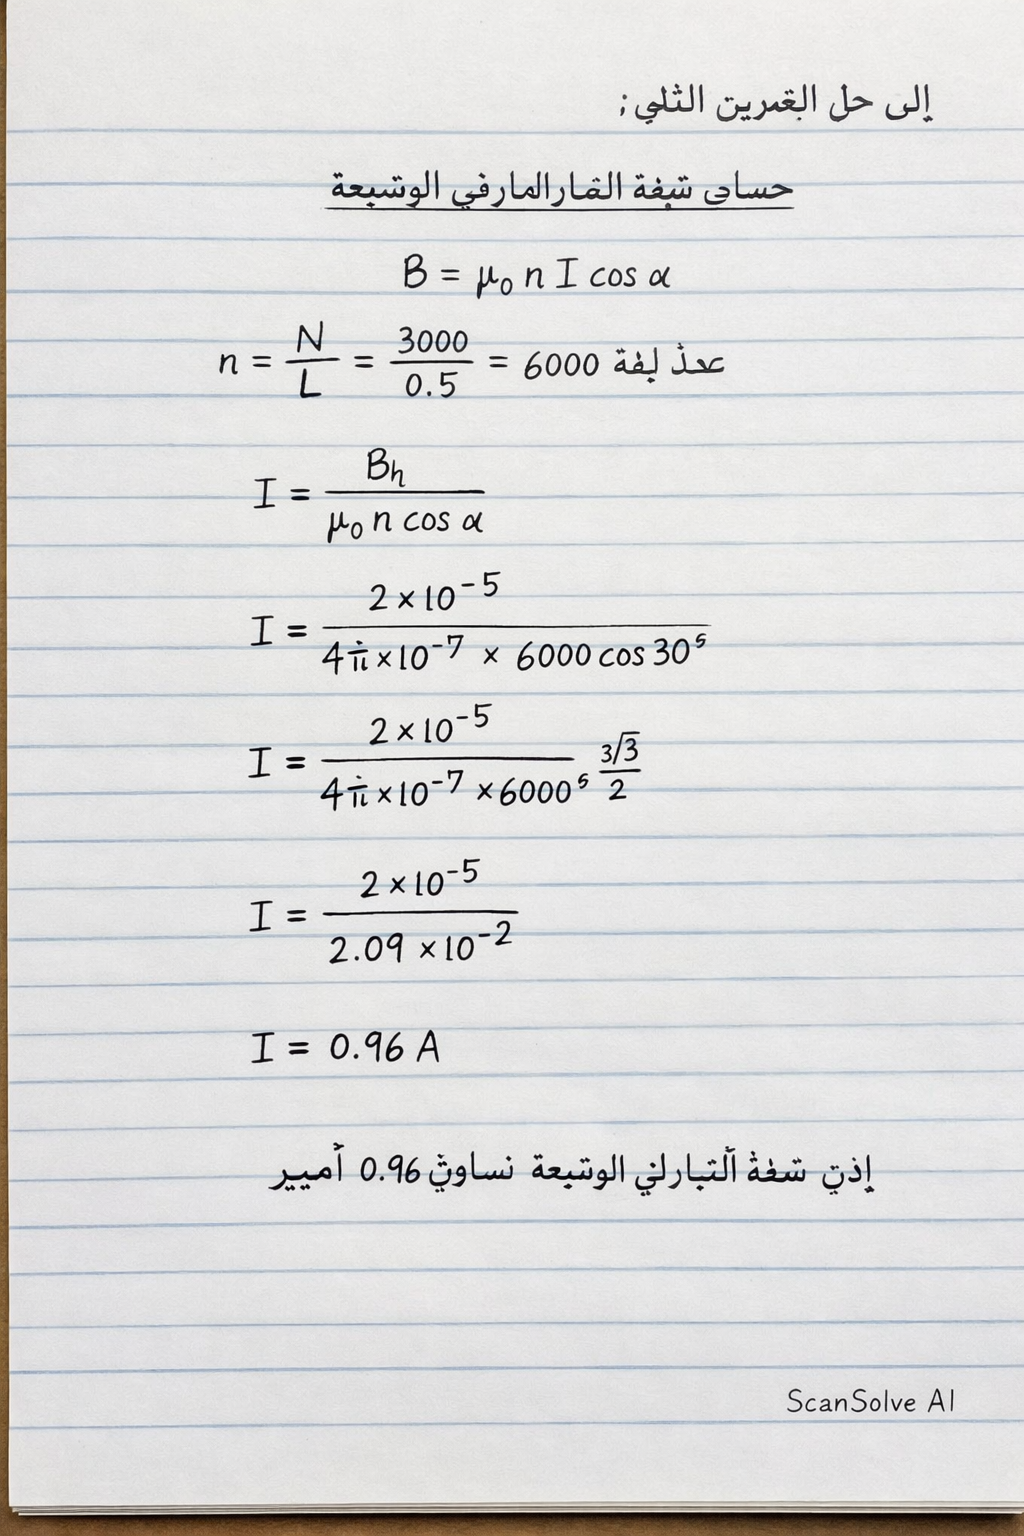 إلى حل القمرين الثلي ;
حساى شفة القارالمارفي الوشيعة
B = μ₀ n I cos α
n = N / L = 3000 / 0.5 = 6000 لفة
I = Bh / μ₀ n cos α
I = 2 × 10⁻⁵ / 4π × 10⁻⁷ × 6000 cos 30⁵
I = 2 × 10⁻⁵ / 4π × 10⁻⁷ × 6000⁵ 3√3 / 2
I = 2 × 10⁻⁵ / 2.09 × 10⁻²
I = 0.96 A
إذن شفة التبارلني الوشيعة نساوي 0.96 أميير
ScanSolve AI